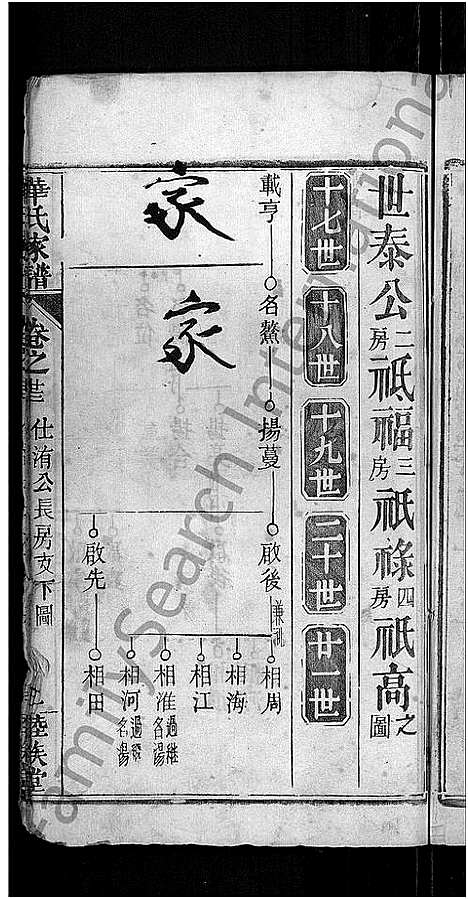 世泰公二房祇福三房祇祿四房祇高之圖
十七世
十八世
十九世
二十世
廿一世
載亨
名鰲
揚蔓
啟後
兼祧
相周
相海
相江
相淮
過繼名湯
相河
過繼名湯
啟先
相田
家
家
華氏家譜
卷之
仕洧公長房支下圖
睦族堂
FamilySearch International